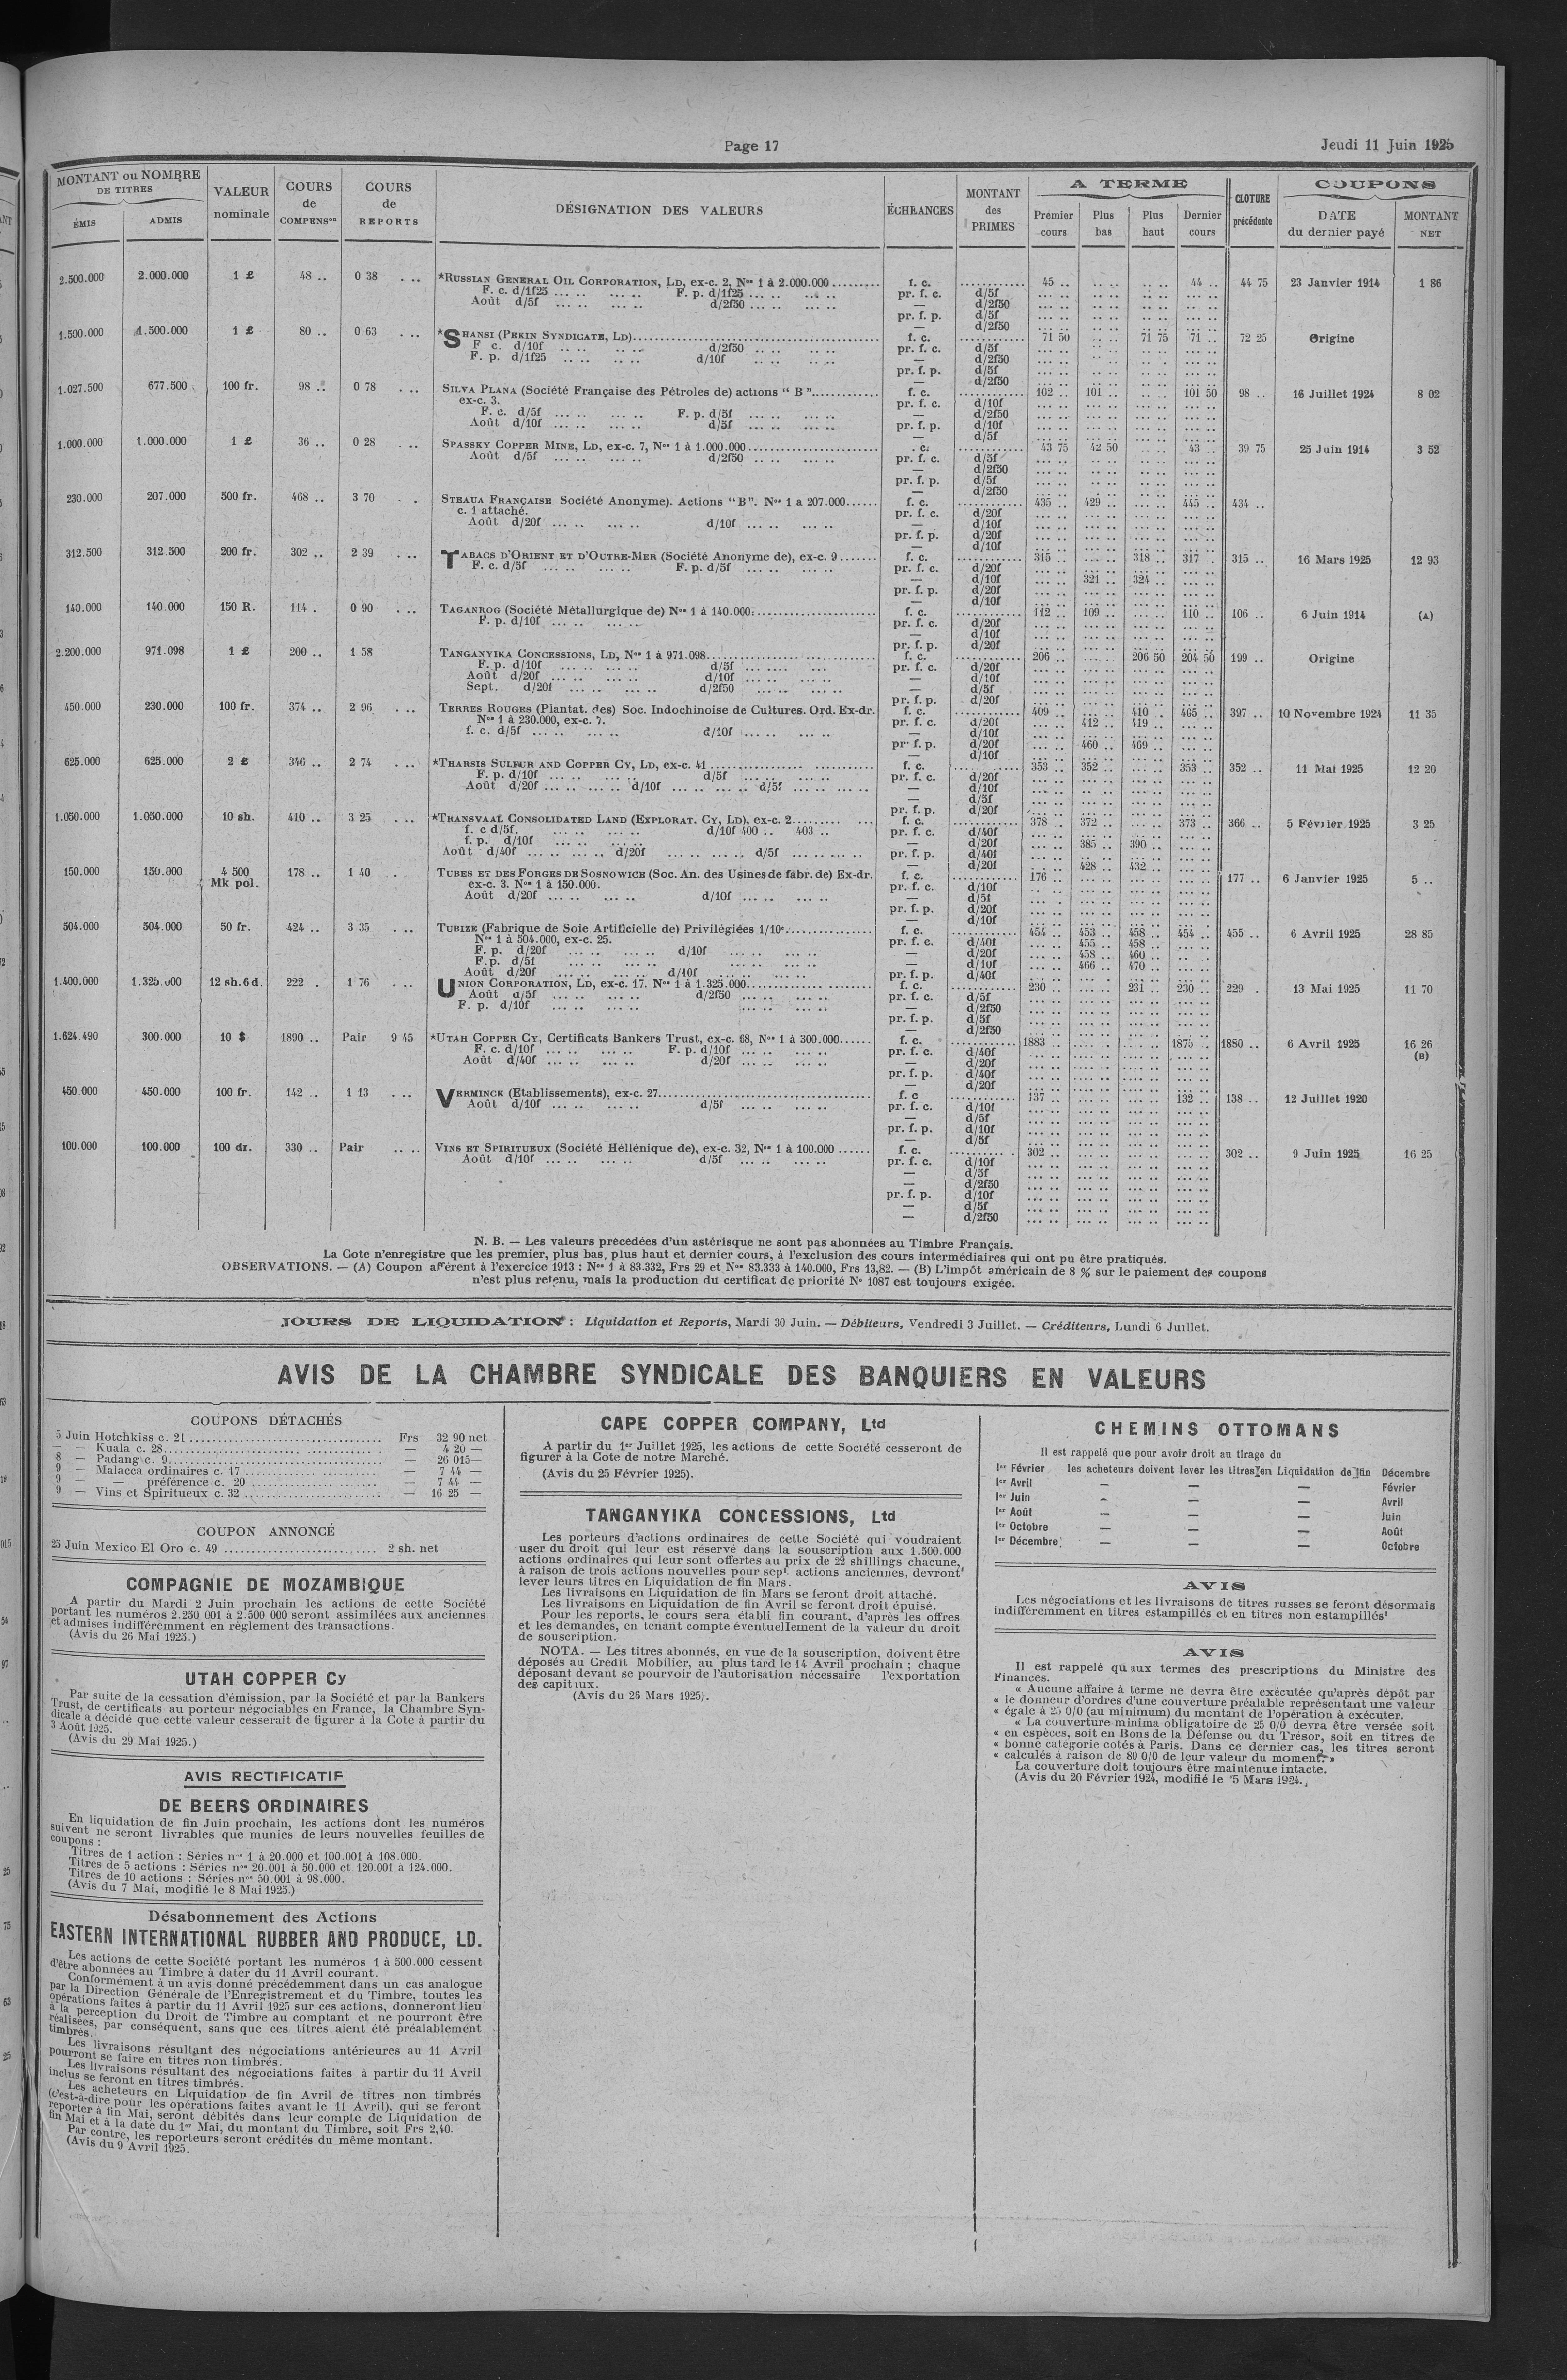 Page 17
Jeudi 11 Juin 1925
MONTANT ou NOMBRE DE TITRES
ÉMIS
ADMIS
VALEUR nominale
COURS de COMPENSon
COURS de REPORTS
DÉSIGNATION DES VALEURS
ÉCHEANCES
MONTANT des PRIMES
A TERME
Premier cours
Plus bas
Plus haut
Dernier cours
CLOTURE précédente
COUPONS
DATE du dernier payé
MONTANT NET
2.500.000 2.000.000 1 £ 48 .. 0 38 . .. *RUSSIAN GENERAL OIL CORPORATION, LD, ex-c. 2, Nos 1 à 2.000.000 ......... f. c. ............ 45 .. .. .. .. .. 44 .. 44 75 23 Janvier 1914 1 86
F. c. d/1f25 ... .. ... .. F. p. d/1f25 ... .. ... .. pr. f. c. d/5f
Août d/5f ... .. ... .. d/2f50 ... .. ... .. — d/2f50
pr. f. p. d/5f
— d/2f50
1.500.000 1.500.000 1 £ 80 .. 0 63 . .. *SHANSI (PEKIN SYNDICATE, LD)......... f. c. ............ 71 50 .. .. 71 75 71 .. 72 25 Origine
F c. d/10f .. .. .. .. d/2f50 .. .. .. .. pr. f. c. d/5f
F. p. d/1f25 .. .. .. .. d/10f .. .. .. .. — d/2f50
pr. f. p. d/5f
— d/2f50
1.027.500 677.500 100 fr. 98 .. 0 78 . .. SILVA PLANA (Société Française des Pétroles de) actions “ B ”............ f. c. ............ 102 .. 101 .. .. .. 101 50 98 .. 16 Juillet 1924 8 02
ex-c. 3. pr. f. c. d/10f
F. c. d/5f ... .. ... .. F. p. d/5f ... .. ... .. — d/2f50
Août d/10f ... .. ... .. d/5f ... .. ... .. pr. f. p. d/10f
— d/5f
1.000.000 1.000.000 1 £ 36 .. 0 28 . .. SPASSKY COPPER MINE, LD, ex-c. 7, Nos 1 à 1.000.000......... . c. ............ 43 75 42 50 .. .. 43 .. 39 75 25 Juin 1914 3 52
Août d/5f ... .. ... .. d/2f50 .. .. ... .. pr. f. c. d/5f
— d/2f50
pr. f. p. d/5f
— d/2f50
230.000 207.000 500 fr. 468 .. 3 70 . . STEAUA FRANÇAISE Société Anonyme). Actions “B”. Nos 1 a 207.000...... f. c. ............ 435 .. 429 .. ... .. 445 .. 434 ..
c. 1 attaché. pr. f. c. d/20f
Août d/20f ... .. ... .. d/10f ... .. ... .. — d/10f
pr. f. p. d/20f
— d/10f
312.500 312.500 200 fr. 302 .. 2 39 . .. TABACS D'ORIENT ET D'OUTRE-MER (Société Anonyme de), ex-c. 9 ....... f. c. ............ 315 .. ... .. 318 .. 317 . 315 .. 16 Mars 1925 12 93
F. c. d/5f ... .. ... .. F. p. d/5f ... .. ... .. pr. f. c. d/20f
— d/10f ... .. 321 .. 324 ..
pr. f. p. d/20f
— d/10f
140.000 140.000 150 R. 114 . 0 90 . .. TAGANROG (Société Métallurgique de) Nos 1 à 140.000......... f. c. ............ 112 .. 109 .. ... .. 110 .. 106 .. 6 Juin 1914 (A)
F. p. d/10f ... .. ... .. pr. f. c. d/20f
— d/10f
pr. f. p. d/20f
2.200.000 971.098 1 £ 200 .. 1 58 TANGANYIKA CONCESSIONS, LD, Nos 1 à 971.098......... f. c. ............ 206 .. ... .. 206 50 204 50 199 .. Origine
F. p. d/10f ... .. ... .. d/5f ... .. ... pr. f. c. d/20f
Août d/20f ... .. ... .. d/10f ... .. ... .. — d/10f
Sept. d/20f ... .. ... .. d/2f50 ... .. ... .. — d/5f
pr. f. p. d/20f
450.000 230.000 100 fr. 374 .. 2 96 . .. TERRES ROUGES (Plantat. des) Soc. Indochinoise de Cultures. Ord. Ex-dr. f. c. ............ 409 .. ... .. 410 . 465 .. 397 .. 10 Novembre 1924 11 35
Nos 1 à 230.000, ex-c. 7. pr. f. c. d/20f ... .. 412 .. 419 ..
f. c. d/5f ... .. ... .. d/10f ... .. ... .. — d/10f
pr. f. p. d/20f ... .. 460 .. 469 ..
— d/10f
625.000 625.000 2 £ 346 .. 2 74 . .. *THARSIS SULFUR AND COPPER CY, LD, ex-c. 41 ......... f. c. ............ 353 .. 352 .. ... .. 353 .. 352 .. 11 Mai 1925 12 20
F. p. d/10f ... .. ... .. d/5f ... .. ... .. pr. f. c. d/20f
Août d/20f ... .. ... .. d/10f ... .. ... .. d/5f ... .. ... .. — d/10f
— d/5f
pr. f. p. d/20f
1.050.000 1.050.000 10 sh. 410 .. 3 25 . .. *TRANSVAAL CONSOLIDATED LAND (EXPLORAT. CY, LD), ex-c. 2......... f. c. ............ 378 .. 372 .. ... .. 373 .. 366 .. 5 Février 1925 3 25
f. c d/5f. ... .. ... .. d/10f 400 .. 403 .. pr. f. c. d/40f
f. p. d/10f ... .. ... .. — d/20f ... .. 385 .. 390 ..
Août d/40f ... .. ... .. d/20f ... .. ... .. d/5f ... .. ... .. pr. f. p. d/40f
— d/20f ... .. 428 .. 432 ..
150.000 150.000 4 500 Mk pol. 178 .. 1 40 . TUBES ET DES FORGES DE SOSNOWICE (Soc. An. des Usines de fabr. de) Ex-dr. f. c. ............ 176 .. 177 .. 6 Janvier 1925 5 ..
ex-c. 3. Nos 1 à 150.000. pr. f. c. d/10f
Août d/20f ... .. ... .. d/10f ... .. ... .. — d/5f
pr. f. p. d/20f
— d/10f
504.000 504.000 50 fr. 424 .. 3 35 . .. TUBIZE (Fabrique de Soie Artificielle de) Privilégiées 1/10e......... f. c. ............ 454 .. 453 .. 458 .. 454 .. 455 .. 6 Avril 1925 28 85
Nos 1 à 504.000, ex-c. 25. pr. f. c. d/40f ... .. 455 .. 458 ..
F. p. d/20f ... .. ... .. d/10f ... .. ... .. — d/20f ... .. 458 .. 460 ..
F.p. d/5f ... .. ... .. — d/10f ... .. 466 .. 470 ..
Août d/20f ... .. ... .. d/10f ... .. ... .. pr. f. p. d/40f
1.400.000 1.325.000 12 sh. 6 d. 222 . 1 76 . .. UNION CORPORATION, LD, ex-c. 17. Nos 1 à 1.325.000......... f. c. ............ 230 .. ... .. 231 .. 230 .. 229 . 13 Mai 1925 11 70
Août d/5f ... .. ... .. d/2f50 ... .. ... .. pr. f. c. d/5f
F. p. d/10f ... .. ... .. — d/2f50
pr. f. p. d/5f
— d/2f50
1.624.490 300.000 10 $ 1890 .. Pair 9 45 *UTAH COPPER CY, Certificats Bankers Trust, ex-c. 68, Nos 1 à 300.000...... f. c. ............ 1883 .. ... .. ... .. 1875 .. 1880 .. 6 Avril 1925 16 26 (B)
F. c. d/10f ... .. ... .. F. p. d/10f ... .. ... .. pr. f. c. d/40f
Août d/40f ... .. ... .. d/20f ... .. ... .. — d/20f
pr. f. p. d/40f
— d/20f
450.000 450.000 100 fr. 142 .. 1 13 . .. VERMINCK (Etablissements), ex-c. 27......... f. c ............ 137 .. ... .. ... .. 132 .. 138 .. 12 Juillet 1920
Août d/10f ... .. ... .. d/5f ... .. ... .. pr. f. c. d/10f
— d/5f
pr. f. p. d/10f
— d/5f
100.000 100.000 100 dr. 330 .. Pair .. .. VINS ET SPIRITUEUX (Société Héllénique de), ex-c. 32, Nos 1 à 100.000 ...... f. c. ............ 302 .. 302 .. 9 Juin 1925 16 25
Août d/10f ... .. ... .. d/5f ... .. ... .. pr. f. c. d/10f
— d/5f
— d/2f50
pr. f. p. d/10f
— d/5f
— d/2f50
N. B. — Les valeurs précédées d'un astérisque ne sont pas abonnées au Timbre Français.
La Cote n'enregistre que les premier, plus bas, plus haut et dernier cours, à l'exclusion des cours intermédiaires qui ont pu être pratiqués.
OBSERVATIONS. — (A) Coupon afférent à l'exercice 1913 : Nos 1 à 83.332, Frs 29 et Nos 83.333 à 140.000, Frs 13,82. — (B) L'impôt américain de 8 % sur le paiement des coupons
n'est plus retenu, mais la production du certificat de priorité No 1087 est toujours exigée.
JOURS DE LIQUIDATION : Liquidation et Reports, Mardi 30 Juin. — Débiteurs, Vendredi 3 Juillet. — Créditeurs, Lundi 6 Juillet.
AVIS DE LA CHAMBRE SYNDICALE DES BANQUIERS EN VALEURS
COUPONS DÉTACHÉS
5 Juin Hotchkiss c. 21 ......... Frs 32 90 net
— — Kuala c. 28......... — 4 20 —
8 — Padang c. 9......... — 26 015—
9 — Malacca ordinaires c. 17 ......... — 7 44 —
9 — — préférence c. 20 ......... — 7 44 —
9 — Vins et Spiritueux c. 32 ......... — 16 25 —
COUPON ANNONCÉ
25 Juin Mexico El Oro c. 49 ......... 2 sh. net
COMPAGNIE DE MOZAMBIQUE
A partir du Mardi 2 Juin prochain les actions de cette Société
portant les numéros 2.250 001 à 2.500 000 seront assimilées aux anciennes
et admises indifféremment en règlement des transactions.
(Avis du 26 Mai 1925.)
UTAH COPPER Cy
Par suite de la cessation d'émission, par la Société et par la Bankers
Trust, de certificats au porteur négociables en France, la Chambre Syn-
dicale a décidé que cette valeur cesserait de figurer à la Cote à partir du
3 Août 1925.
(Avis du 29 Mai 1925.)
AVIS RECTIFICATIF
DE BEERS ORDINAIRES
En liquidation de fin Juin prochain, les actions dont les numéros
suivent ne seront livrables que munies de leurs nouvelles feuilles de
coupons :
Titres de 1 action : Séries nos 1 à 20.000 et 100.001 à 108.000.
Titres de 5 actions : Séries nos 20.001 à 50.000 et 120.001 à 124.000.
Titres de 10 actions : Séries nos 50.001 à 98.000.
(Avis du 7 Mai, modifié le 8 Mai 1925.)
Désabonnement des Actions
EASTERN INTERNATIONAL RUBBER AND PRODUCE, LD.
Les actions de cette Société portant les numéros 1 à 500.000 cessent
d'être abonnées au Timbre à dater du 11 Avril courant.
Conformément à un avis donné précédemment dans un cas analogue
par la Direction Générale de l'Enregistrement et du Timbre, toutes les
opérations faites à partir du 11 Avril 1925 sur ces actions, donneront lieu
à la perception du Droit de Timbre au comptant et ne pourront être
réalisées, par conséquent, sans que ces titres aient été préalablement
timbrés.
Les livraisons résultant des négociations antérieures au 11 Avril
pourront se faire en titres non timbrés.
Les livraisons résultant des négociations faites à partir du 11 Avril
inclus se feront en titres timbrés.
Les acheteurs en Liquidation de fin Avril de titres non timbrés
(c'est-à-dire pour les opérations faites avant le 11 Avril), qui se feront
reporter à fin Mai, seront débités dans leur compte de Liquidation de
fin Mai et à la date du 1er Mai, du montant du Timbre, soit Frs 2,40.
Par contre, les reporteurs seront crédités du même montant.
(Avis du 9 Avril 1925.
CAPE COPPER COMPANY, Ltd
A partir du 1er Juillet 1925, les actions de cette Société cesseront de
figurer à la Cote de notre Marché.
(Avis du 25 Février 1925).
TANGANYIKA CONCESSIONS, Ltd
Les porteurs d'actions ordinaires de cette Société qui voudraient
user du droit qui leur est réservé dans la souscription aux 1.500.000
actions ordinaires qui leur sont offertes au prix de 22 shillings chacune,
à raison de trois actions nouvelles pour sept actions anciennes, devront
lever leurs titres en Liquidation de fin Mars.
Les livraisons en Liquidation de fin Mars se feront droit attaché.
Les livraisons en Liquidation de fin Avril se feront droit épuisé.
Pour les reports, le cours sera établi fin courant, d'après les offres
et les demandes, en tenant compte éventuellement de la valeur du droit
de souscription.
NOTA. — Les titres abonnés, en vue de la souscription, doivent être
déposés au Crédit Mobilier, au plus tard le 14 Avril prochain ; chaque
déposant devant se pourvoir de l'autorisation nécessaire l'exportation
des capitaux.
(Avis du 26 Mars 1925).
CHEMINS OTTOMANS
Il est rappelé que pour avoir droit au tirage du
1er Février les acheteurs doivent lever les titres en Liquidation de fin Décembre
1er Avril — — — Février
1er Juin — — — Avril
1er Août — — — Juin
1er Octobre — — — Août
1er Décembre — — — Octobre
AVIS
Les négociations et les livraisons de titres russes se feront désormais
indifféremment en titres estampillés et en titres non estampillés
AVIS
Il est rappelé qu aux termes des prescriptions du Ministre des
Finances.
« Aucune affaire à terme ne devra être exécutée qu'après dépôt par
« le donneur d'ordres d'une couverture préalable représentant une valeur
« égale à 25 0/0 (au minimum) du montant de l'opération à exécuter.
« La couverture minima obligatoire de 25 0/0 devra être versée soit
« en espèces, soit en Bons de la Défense ou du Trésor, soit en titres de
« bonne catégorie cotés à Paris. Dans ce dernier cas, les titres seront
« calculés à raison de 80 0/0 de leur valeur du moment. »
La couverture doit toujours être maintenue intacte.
(Avis du 20 Février 1924, modifié le 5 Mars 1924.)